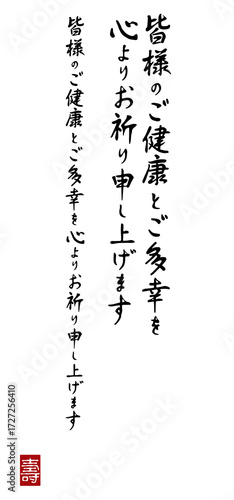 皆様のご健康とご多幸を
心よりお祈り申し上げます
皆様のご健康とご多幸を心よりお祈り申し上げます
壽
Adobe Stock | #1727256410